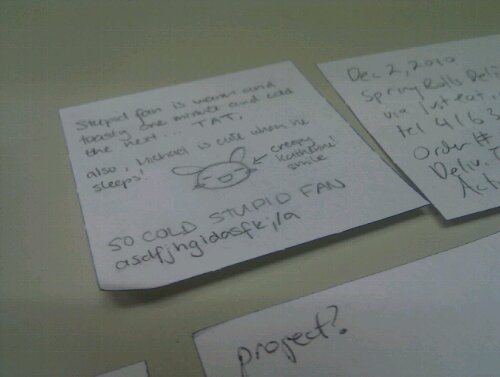 Stupid fan is warm and
toasty one minute and cold
the next... TAT,
also, Michael is cute when he
sleeps!
← creepy
Katherine!
smile
SO COLD STUPID FAN
asdfjhgidasfk;la
Dec 2, 2010
Spring Rolls Deli
via Just eat.
tel 416 3
Order #
Deliv. T
project?